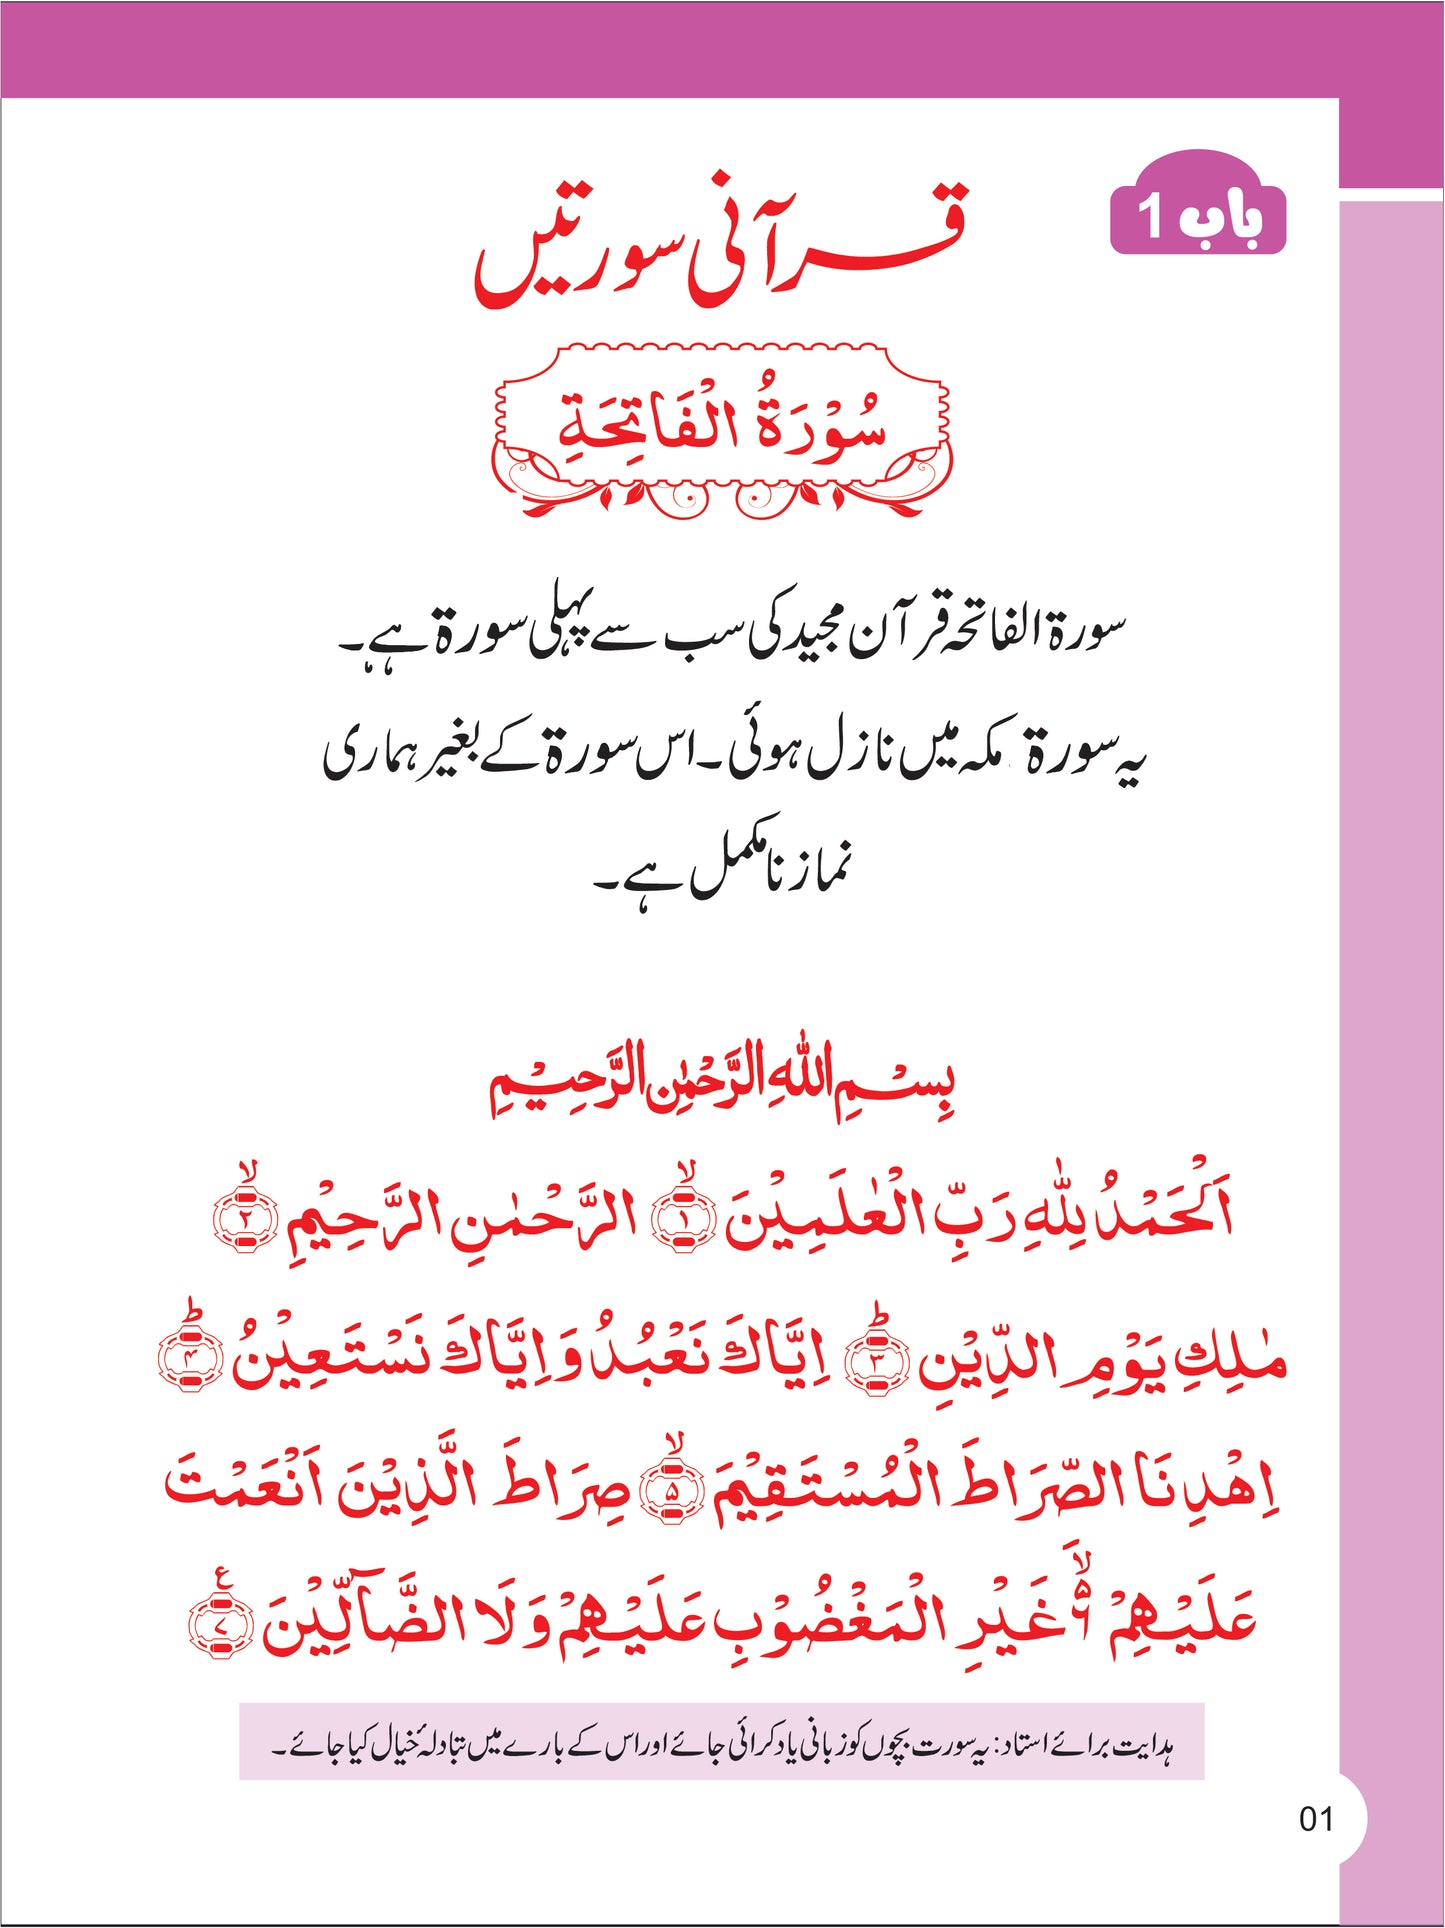 باب 1
قرآنی سورتیں
سُوْرَةُ الْفَاتِحَةِ
سورۃ الفاتحہ قرآن مجید کی سب سے پہلی سورۃ ہے۔
یہ سورۃ مکہ میں نازل ہوئی۔ اس سورۃ کے بغیر ہماری
نماز نامکمل ہے۔
بِسْمِ اللّٰهِ الرَّحْمٰنِ الرَّحِيْمِ
اَلْحَمْدُ لِلّٰهِ رَبِّ الْعٰلَمِيْنَ ۙ﴿۱﴾ الرَّحْمٰنِ الرَّحِيْمِ ۙ﴿۲﴾
مٰلِكِ يَوْمِ الدِّيْنِ ؕ﴿۳﴾ اِيَّاكَ نَعْبُدُ وَ اِيَّاكَ نَسْتَعِيْنُ ؕ﴿۴﴾
اِهْدِنَا الصِّرَاطَ الْمُسْتَقِيْمَ ۙ﴿۵﴾ صِرَاطَ الَّذِيْنَ اَنْعَمْتَ
عَلَيْهِمْ ۙ۬ۦ۶ غَيْرِ الْمَغْضُوْبِ عَلَيْهِمْ وَلَا الضَّآلِّيْنَ ﴿۷﴾ع
ہدایت برائے استاد: یہ سورت بچوں کو زبانی یاد کرائی جائے اور اس کے بارے میں تبادلۂ خیال کیا جائے۔
01